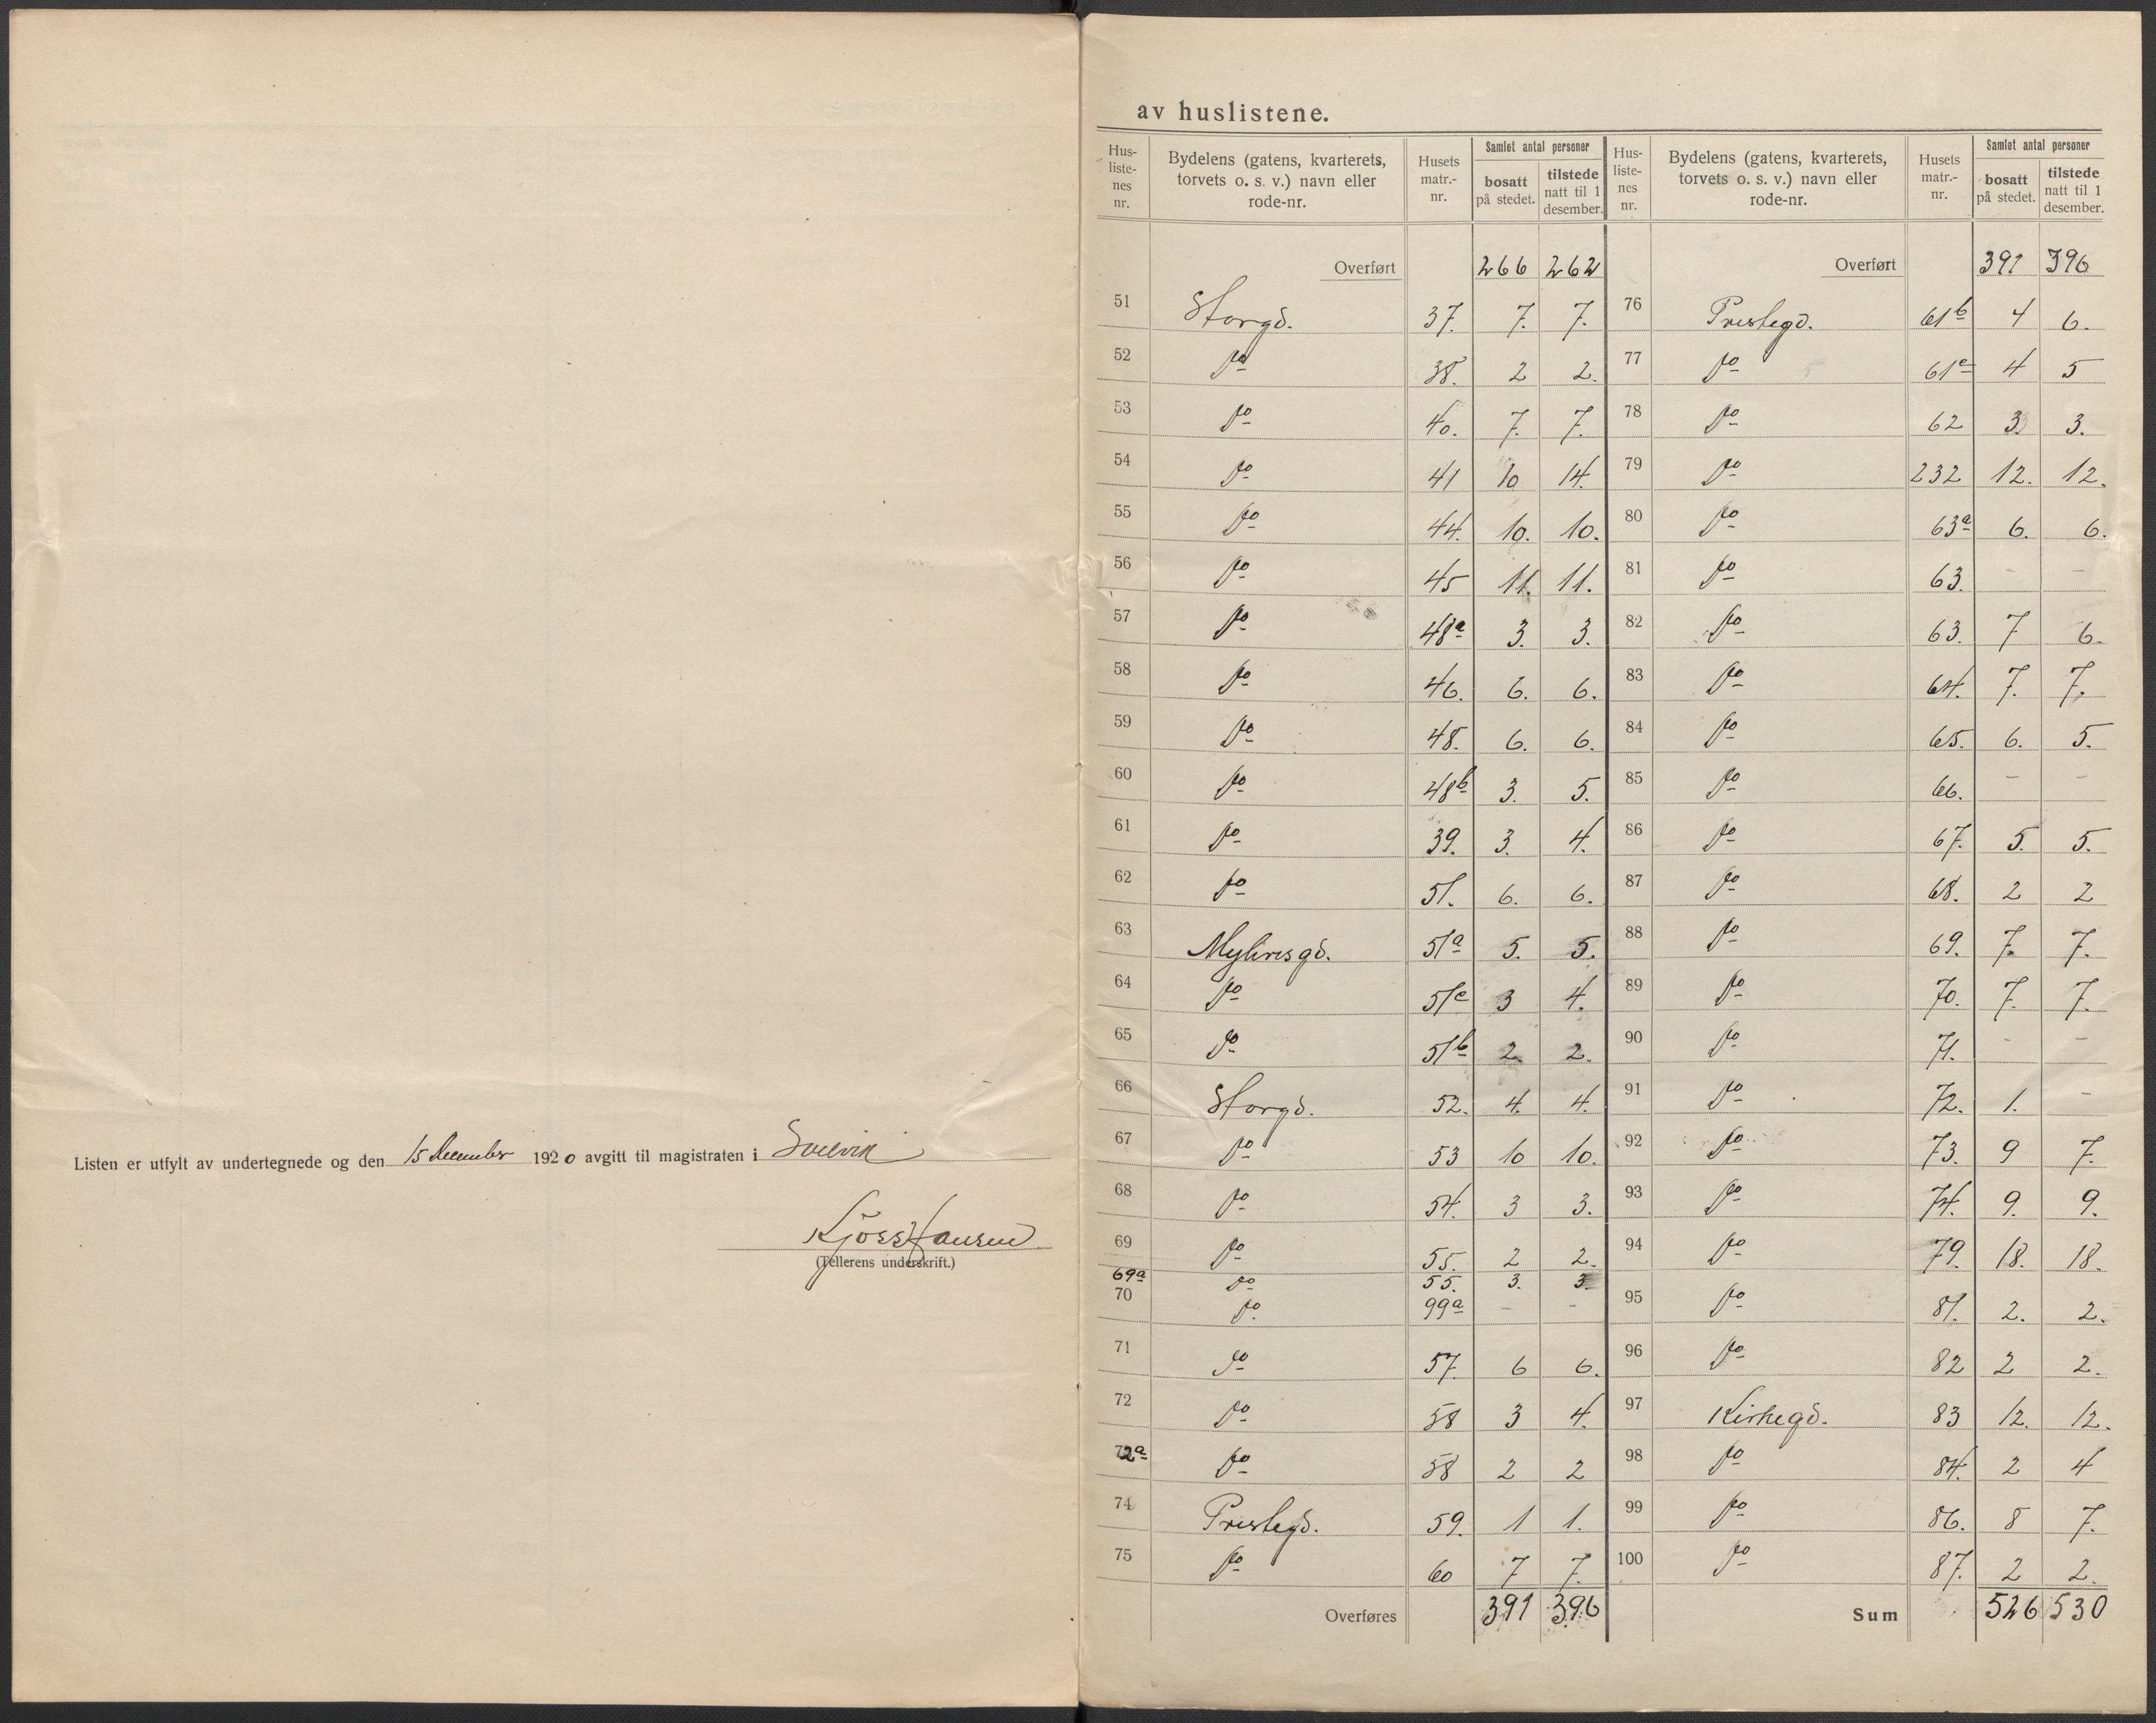 Listen er utfylt av undertegnede og den 15 December 1920 avgitt til magistraten i Svelvik
Kjøss Hansen
(Tellerens underskrift.)
av huslistene.
Hus-liste-nes nr. Bydelens (gatens, kvarterets, torvets o. s. v.) navn eller rode-nr. Husets matr.-nr. Samlet antal personer bosatt på stedet. tilstede natt til 1 desember.
Overført 266 262
51 Storgd. 37. 7. 7.
52 do 38. 2 2.
53 do 40. 7. 7.
54 do 41 10 14.
55 do 44. 10. 10.
56 do 45 11. 11.
57 do 48a 3. 3.
58 do 46. 6. 6.
59 do 48. 6. 6.
60 do 48b 3. 5.
61 do 39. 3. 4.
62 do 51. 6. 6.
63 Mylivesgd. 51a 5. 5.
64 do 51c 3 4.
65 do 51b 2. 2.
66 Storgd. 52. 4. 4.
67 do 53 10 10.
68 do 54. 3 3.
69 do 55. 2 2.
69a do 55. 3. 3
70 do. 99a - -
71 do 57. 6 6.
72 do 58 3 4.
72a do 58 2 2
74 Prestegd. 59. 1 1.
75 do 60 7 7.
Overføres 391 396
Hus-liste-nes nr. Bydelens (gatens, kvarterets, torvets o. s. v.) navn eller rode-nr. Husets matr.-nr. Samlet antal personer bosatt på stedet. tilstede natt til 1 desember.
Overført 391 396
76 Prestegd. 61b 4 6.
77 do 61c 4 5
78 do 62 3. 3.
79 do 232 12. 12.
80 do 63a 6. 6.
81 do 63. - -
82 do 63. 7 6.
83 do 64. 7. 7.
84 do 65. 6. 5.
85 do 66. - -
86 do 67. 5. 5.
87 do 68. 2 2
88 do 69. 7. 7.
89 do 70. 7. 7.
90 do 71. - -
91 do 72. 1. -
92 do 73. 9 7.
93 do 74. 9. 9.
94 do 79. 18. 18.
95 do 81. 2. 2.
96 do 82 2 2.
97 Kirkegd. 83 12. 12.
98 do 84. 2 4
99 do 86. 8 7.
100 do 87. 2 2.
Sum 526 530